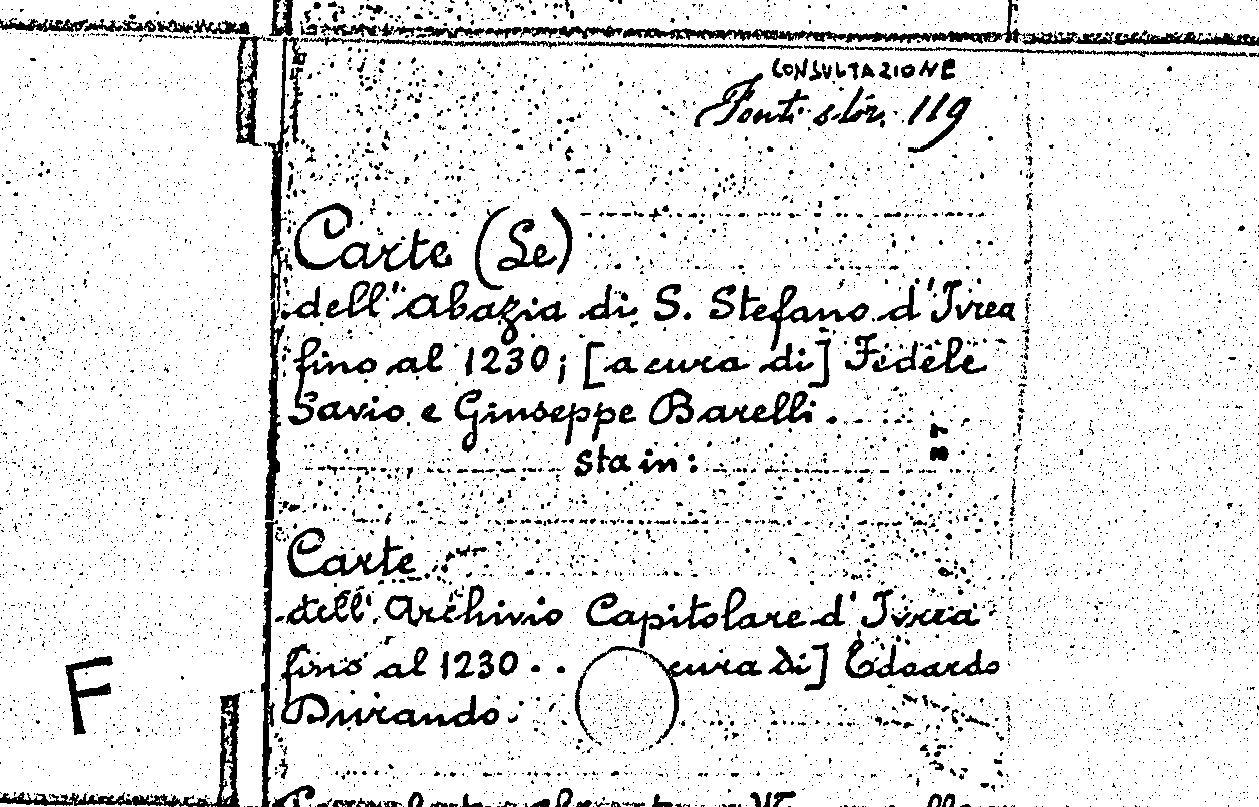 CONSULTAZIONE
Fonti stor. 119
Carte (Le)
dell'Abazia di S. Stefano d'Ivrea
fino al 1230; [a cura di] Fedele
Savio e Giuseppe Barelli.
37
sta in:
Carte
dell'Archivio Capitolare d'Ivrea
fino al 1230 . . cura di] Edoardo
Durando.
F